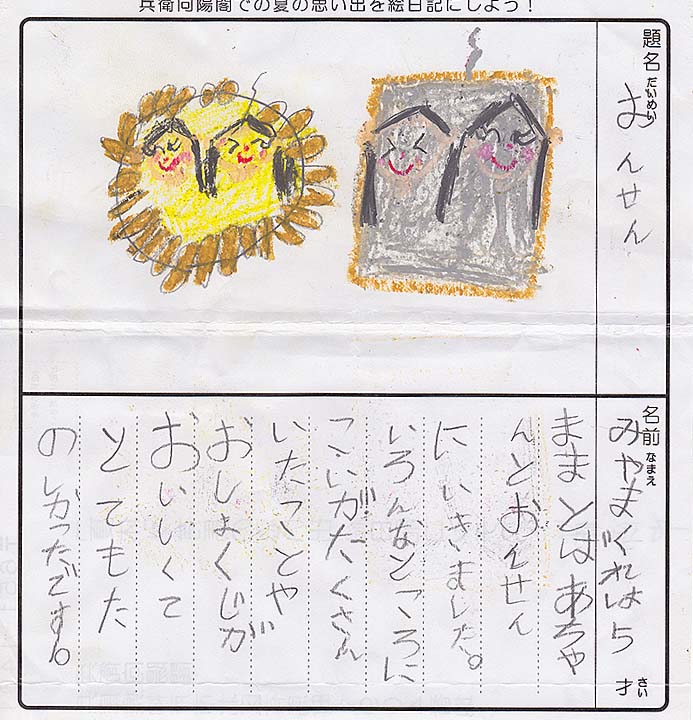 兵衛向陽閣での夏の思い出を絵日記にしよう！
題名 だいめい
おんせん
名前 なまえ
みやまぐれは 5 才 さい
ままとばあちゃ
んとおんせん
にいきました。
いろんなところに
こいがたくさん
いたことや
おしょくじが
おいしくて
とてもた
のしかったです。